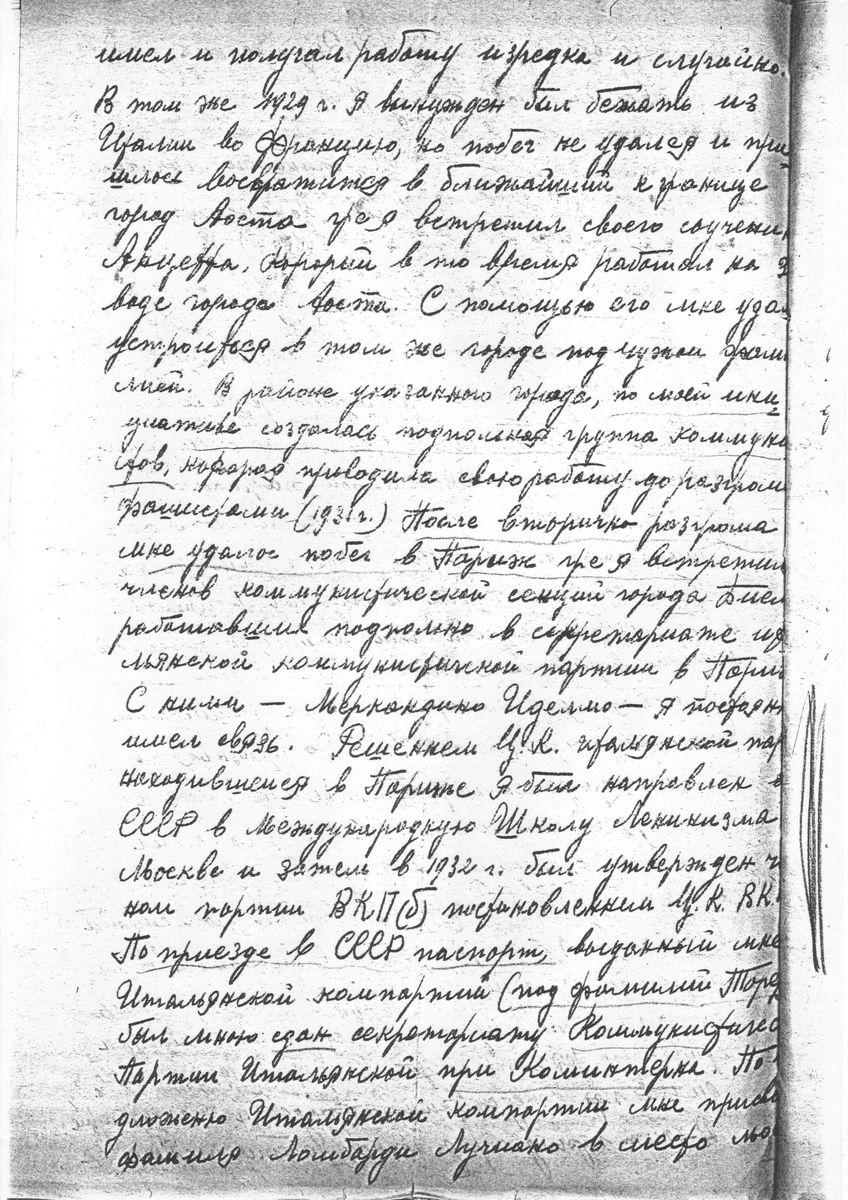 имел и получал работу изредка и случайно.
В том же 1929 г. я вынужден был бежать из
Италии во Францию, но побег не удался и при-
шлось возвратится в ближайший к границе
город Аоста где я встретил своего соучени
Анцетта, который в то время работал на з
воде города Аоста. С помощью его мне уда
устроиться в том же городе под чужой фами
лией. В районе указанного города, по моей ини-
циативе создалась подпольная группа коммуни
стов, которая приводила свою работу до разгром
фашистами (1931 г.) После вторично разгрома
мне удалос побег в Париж где я встретил
членов коммунистической секций города Биел
работавших подпольно в секретариате ита
льянской коммунистичной партии в Пари
С ними — Меркандино Иделмо — я постоян
имел связь. Решением Ц.К. итальянской пар
находившейся в Париже я был направлен в
СССР в Международную Школу Ленинизма
Москве и затем в 1932 г. был утвержден ч
ном партии ВКП(б) постановлением Ц.К. ВК
По приезде в СССР паспорт, выданный мне
Итальянской компартий (под фамилий Торе
был мною сдан секротариату Коммунистичес
Партии Итальянской при Коминтерна. По
дложеню Итальянской компартии мне присво
фамиля Ломбарди Лучиано в место мо